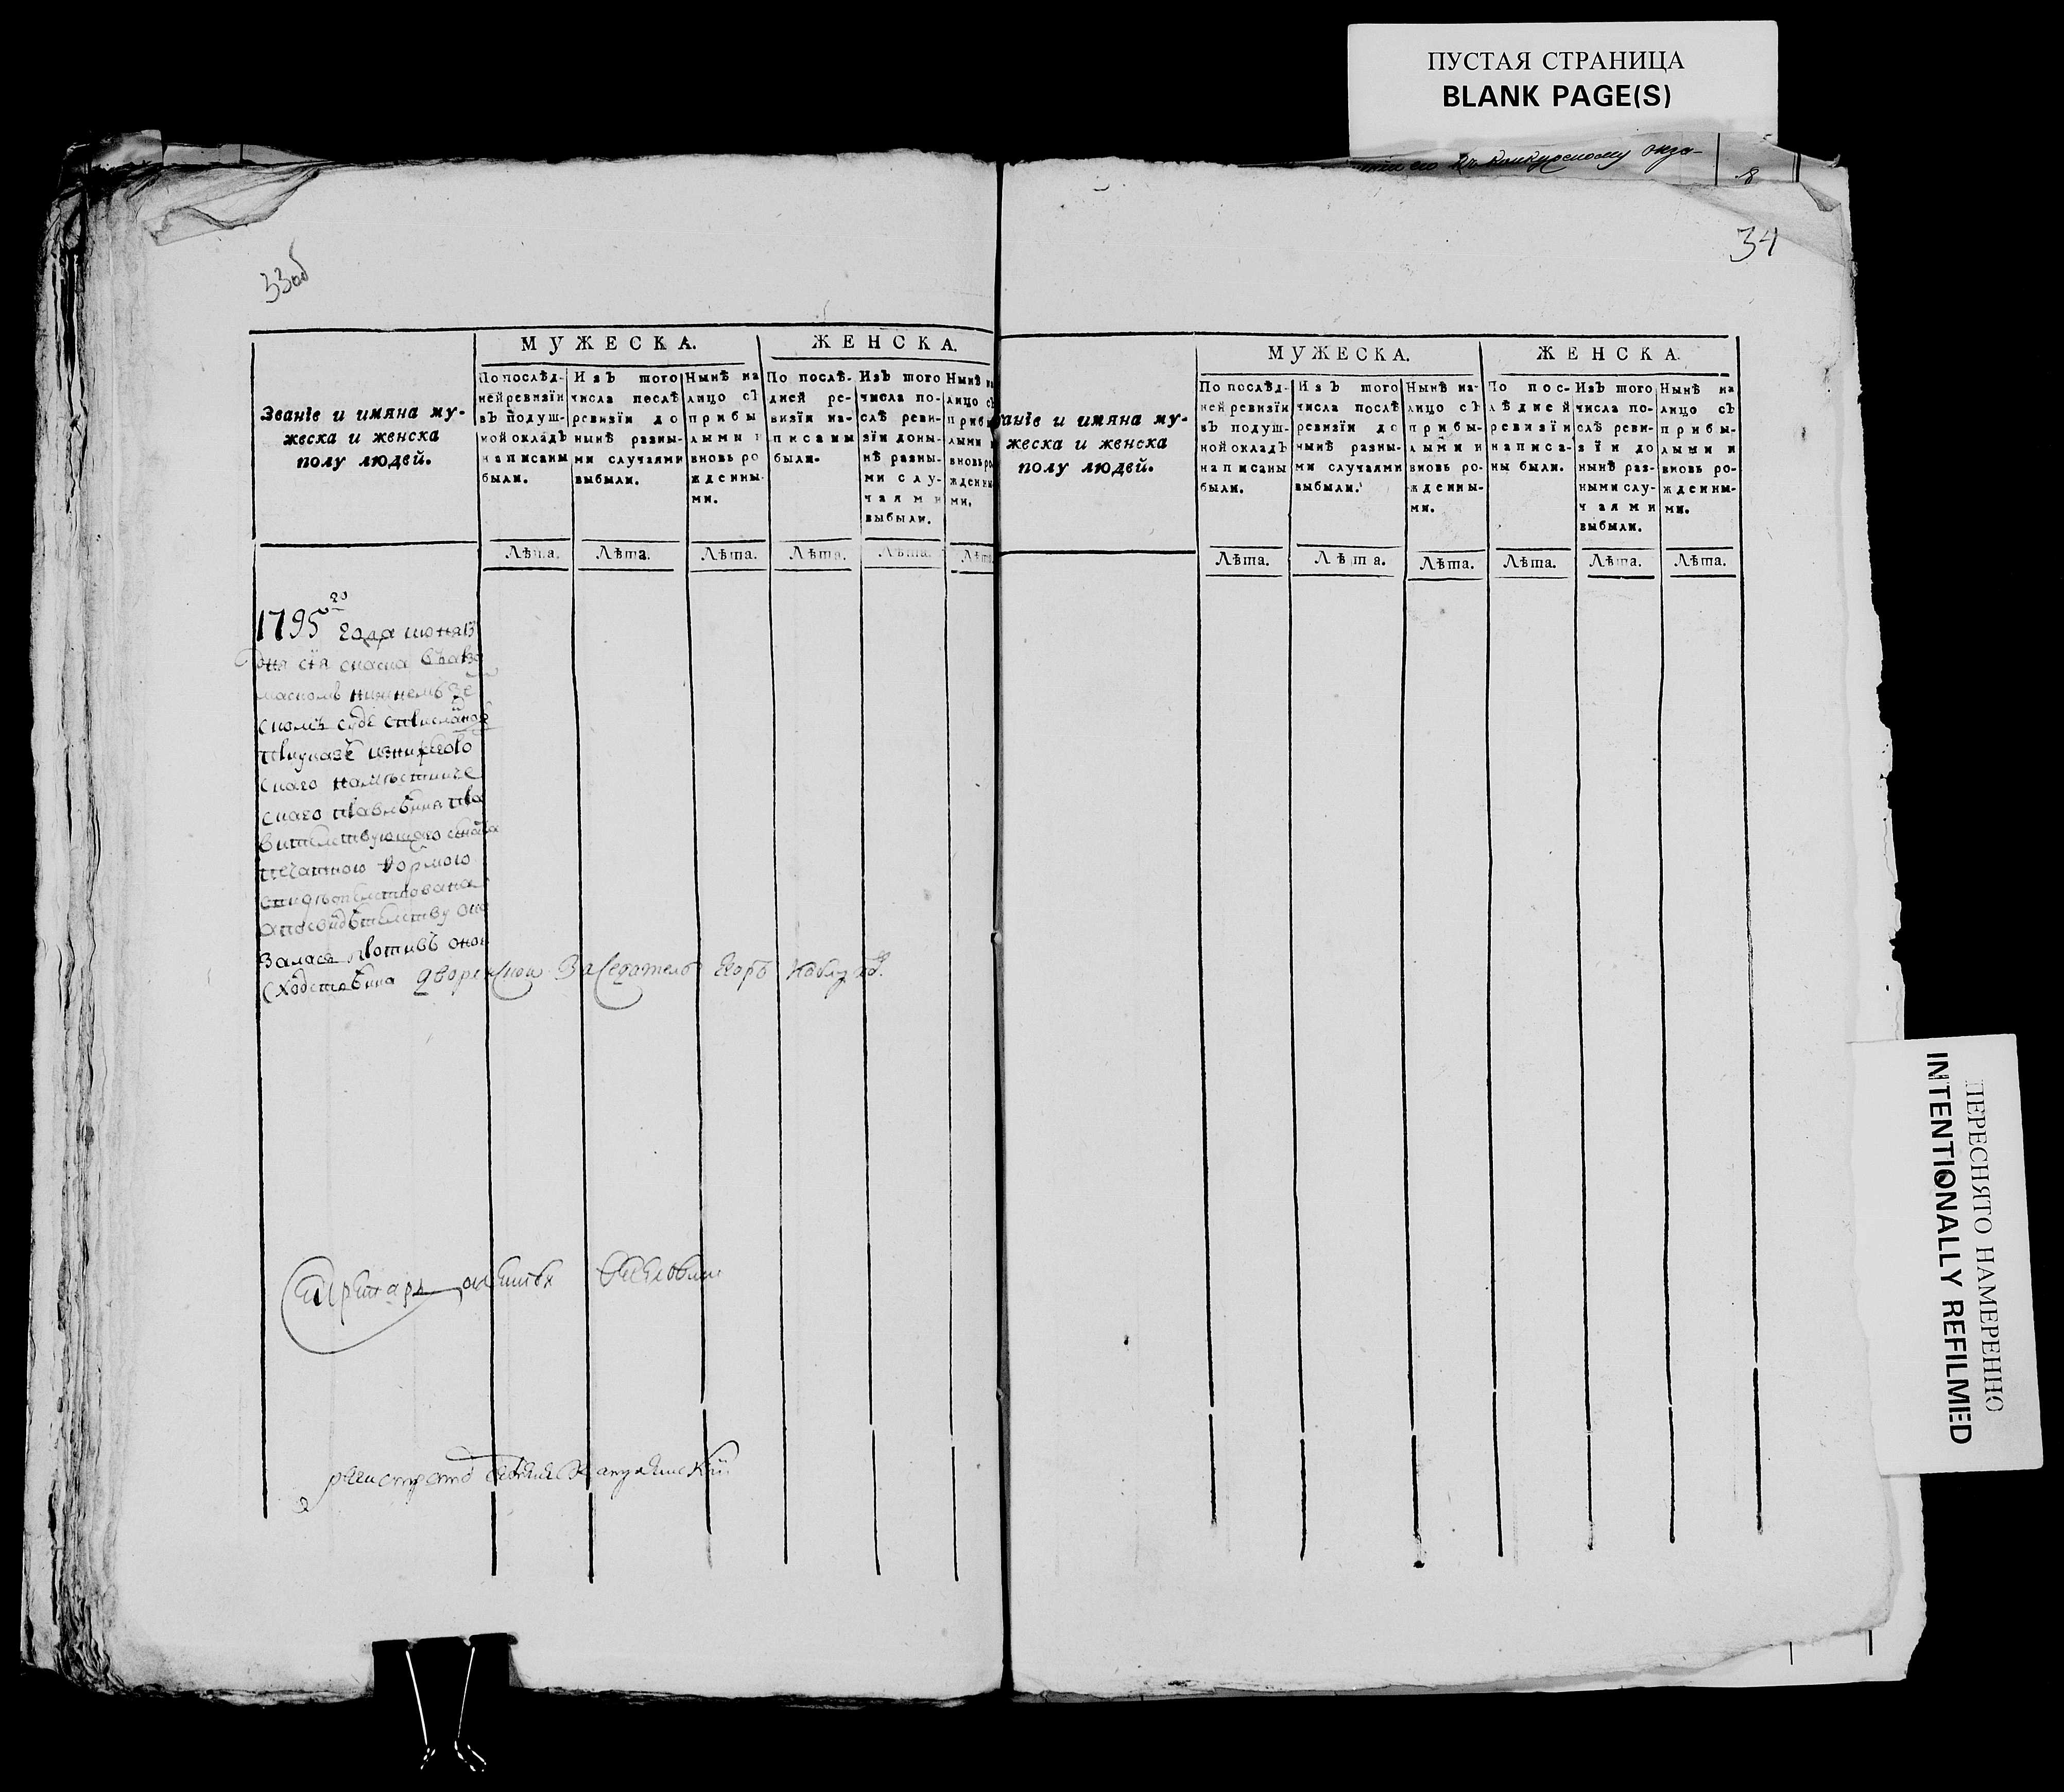 ПУСТАЯ СТРАНИЦА
BLANK PAGE(S)
къ конкурсному экза-
8
33об
34
МУЖЕСКА.
ЖЕНСКА.
Званіе и имяна му-
жеска и женска
полу людей.
По послѣд-
ней ревизіи
въ подуш-
ной окладъ
написаны
были.
Изъ того
числа послѣ
ревизіи до
нынѣ разны-
ми случаями
выбыли.
Нынѣ на
лицо съ
прибы
лыми и
вновь ро
жденны-
ми.
По послѣ-
дней ре-
визіи на-
писаны
были.
Изъ того
числа по-
слѣ реви-
зіи доны-
нѣ разны-
ми слу-
чаями
выбыли.
Нынѣ на
лицо съ
приб
лыми и
вновь ро
жденны
ми.
Лѣта.
Лѣта.
Лѣта.
Лѣта.
Лѣта.
Лѣта
1795го года июня 13
дня сия скаска въ арза
маскомъ нижнемъ зе
скомъ суде
указе
скаго наместниче
скаго правления пра
вительствующаго сената
печатною формою
свидетельствована
а по свидетельству ока
залась противъ оной
сходственна дворянской заседатель Егоръ
Секретарь
регистраторъ
МУЖЕСКА.
ЖЕНСКА.
аніе и имяна му-
жеска и женска
полу людей.
По послѣд-
ней ревизіи
въ подуш-
ной окладъ
написаны
были.
Изъ того
числа послѣ
ревизіи до
нынѣ разны-
ми случаями
выбыли.
Нынѣ на-
лицо съ
прибы-
лыми и
вновь ро-
жденны-
ми.
По пос-
лѣдней
ревизіи
написа-
ны были.
Изъ того
числа по-
слѣ реви-
зіи до
нынѣ раз-
ными слу-
чаями
выбыли.
Нынѣ на
лицо съ
прибы-
лыми и
вновь ро-
жденны-
ми.
Лѣта.
Лѣта.
Лѣта.
Лѣта.
Лѣта.
Лѣта.
ПЕРЕСНЯТО НАМЕРЕННО
INTENTIONALLY REFILMED